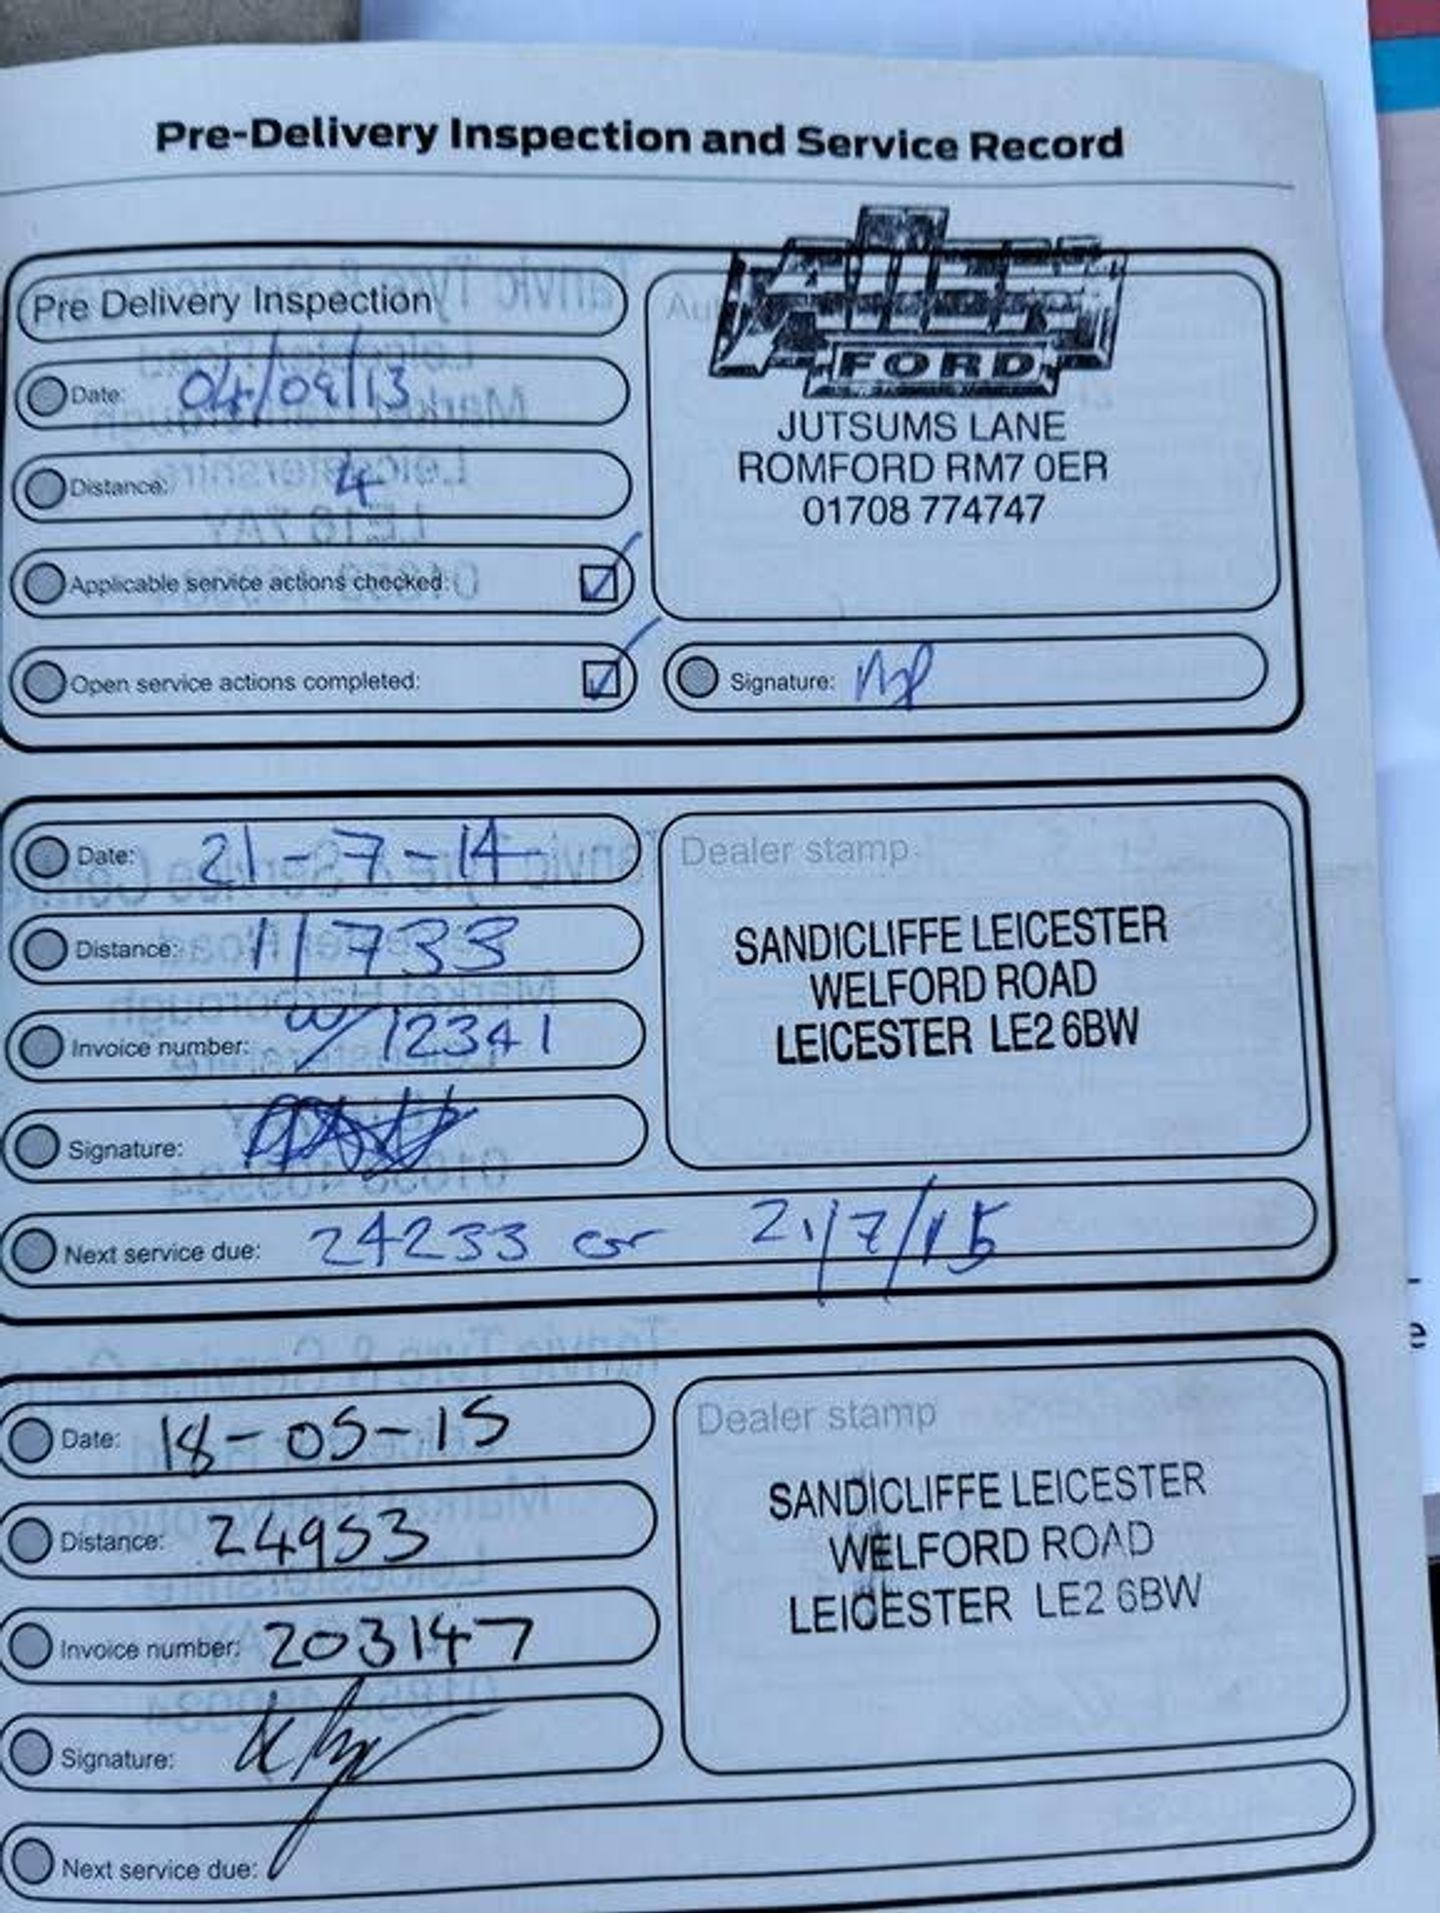 Pre-Delivery Inspection and Service Record
Pre Delivery Inspection
Date: 04/09/13
Distance: 4
Applicable service actions checked:
Open service actions completed:
ALLEN
FORD
JUTSUMS LANE
ROMFORD RM7 0ER
01708 774747
Signature:
Date: 21-7-14
Distance: 11733
Invoice number: W/12341
Signature:
Next service due: 24233 or 21/7/15
Dealer stamp
SANDICLIFFE LEICESTER
WELFORD ROAD
LEICESTER LE2 6BW
Date: 18-05-15
Distance: 24953
Invoice number: 203147
Signature:
Next service due:
Dealer stamp
SANDICLIFFE LEICESTER
WELFORD ROAD
LEICESTER LE2 6BW